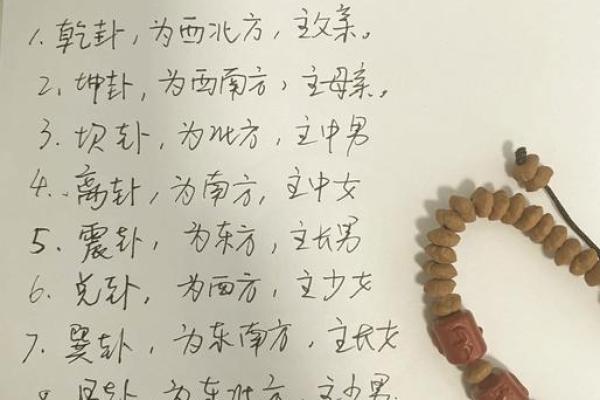 1. 乾卦，为西北方，主父亲。
2. 坤卦，为西南方，主母亲。
3. 坎卦，为北方，主中男
4. 离卦，为南方，主中女
5. 震卦，为东方，主长男
6. 兑卦，为西方，主少女
7. 巽卦，为东南方，主长女
8. 艮卦，为东北方，主少男